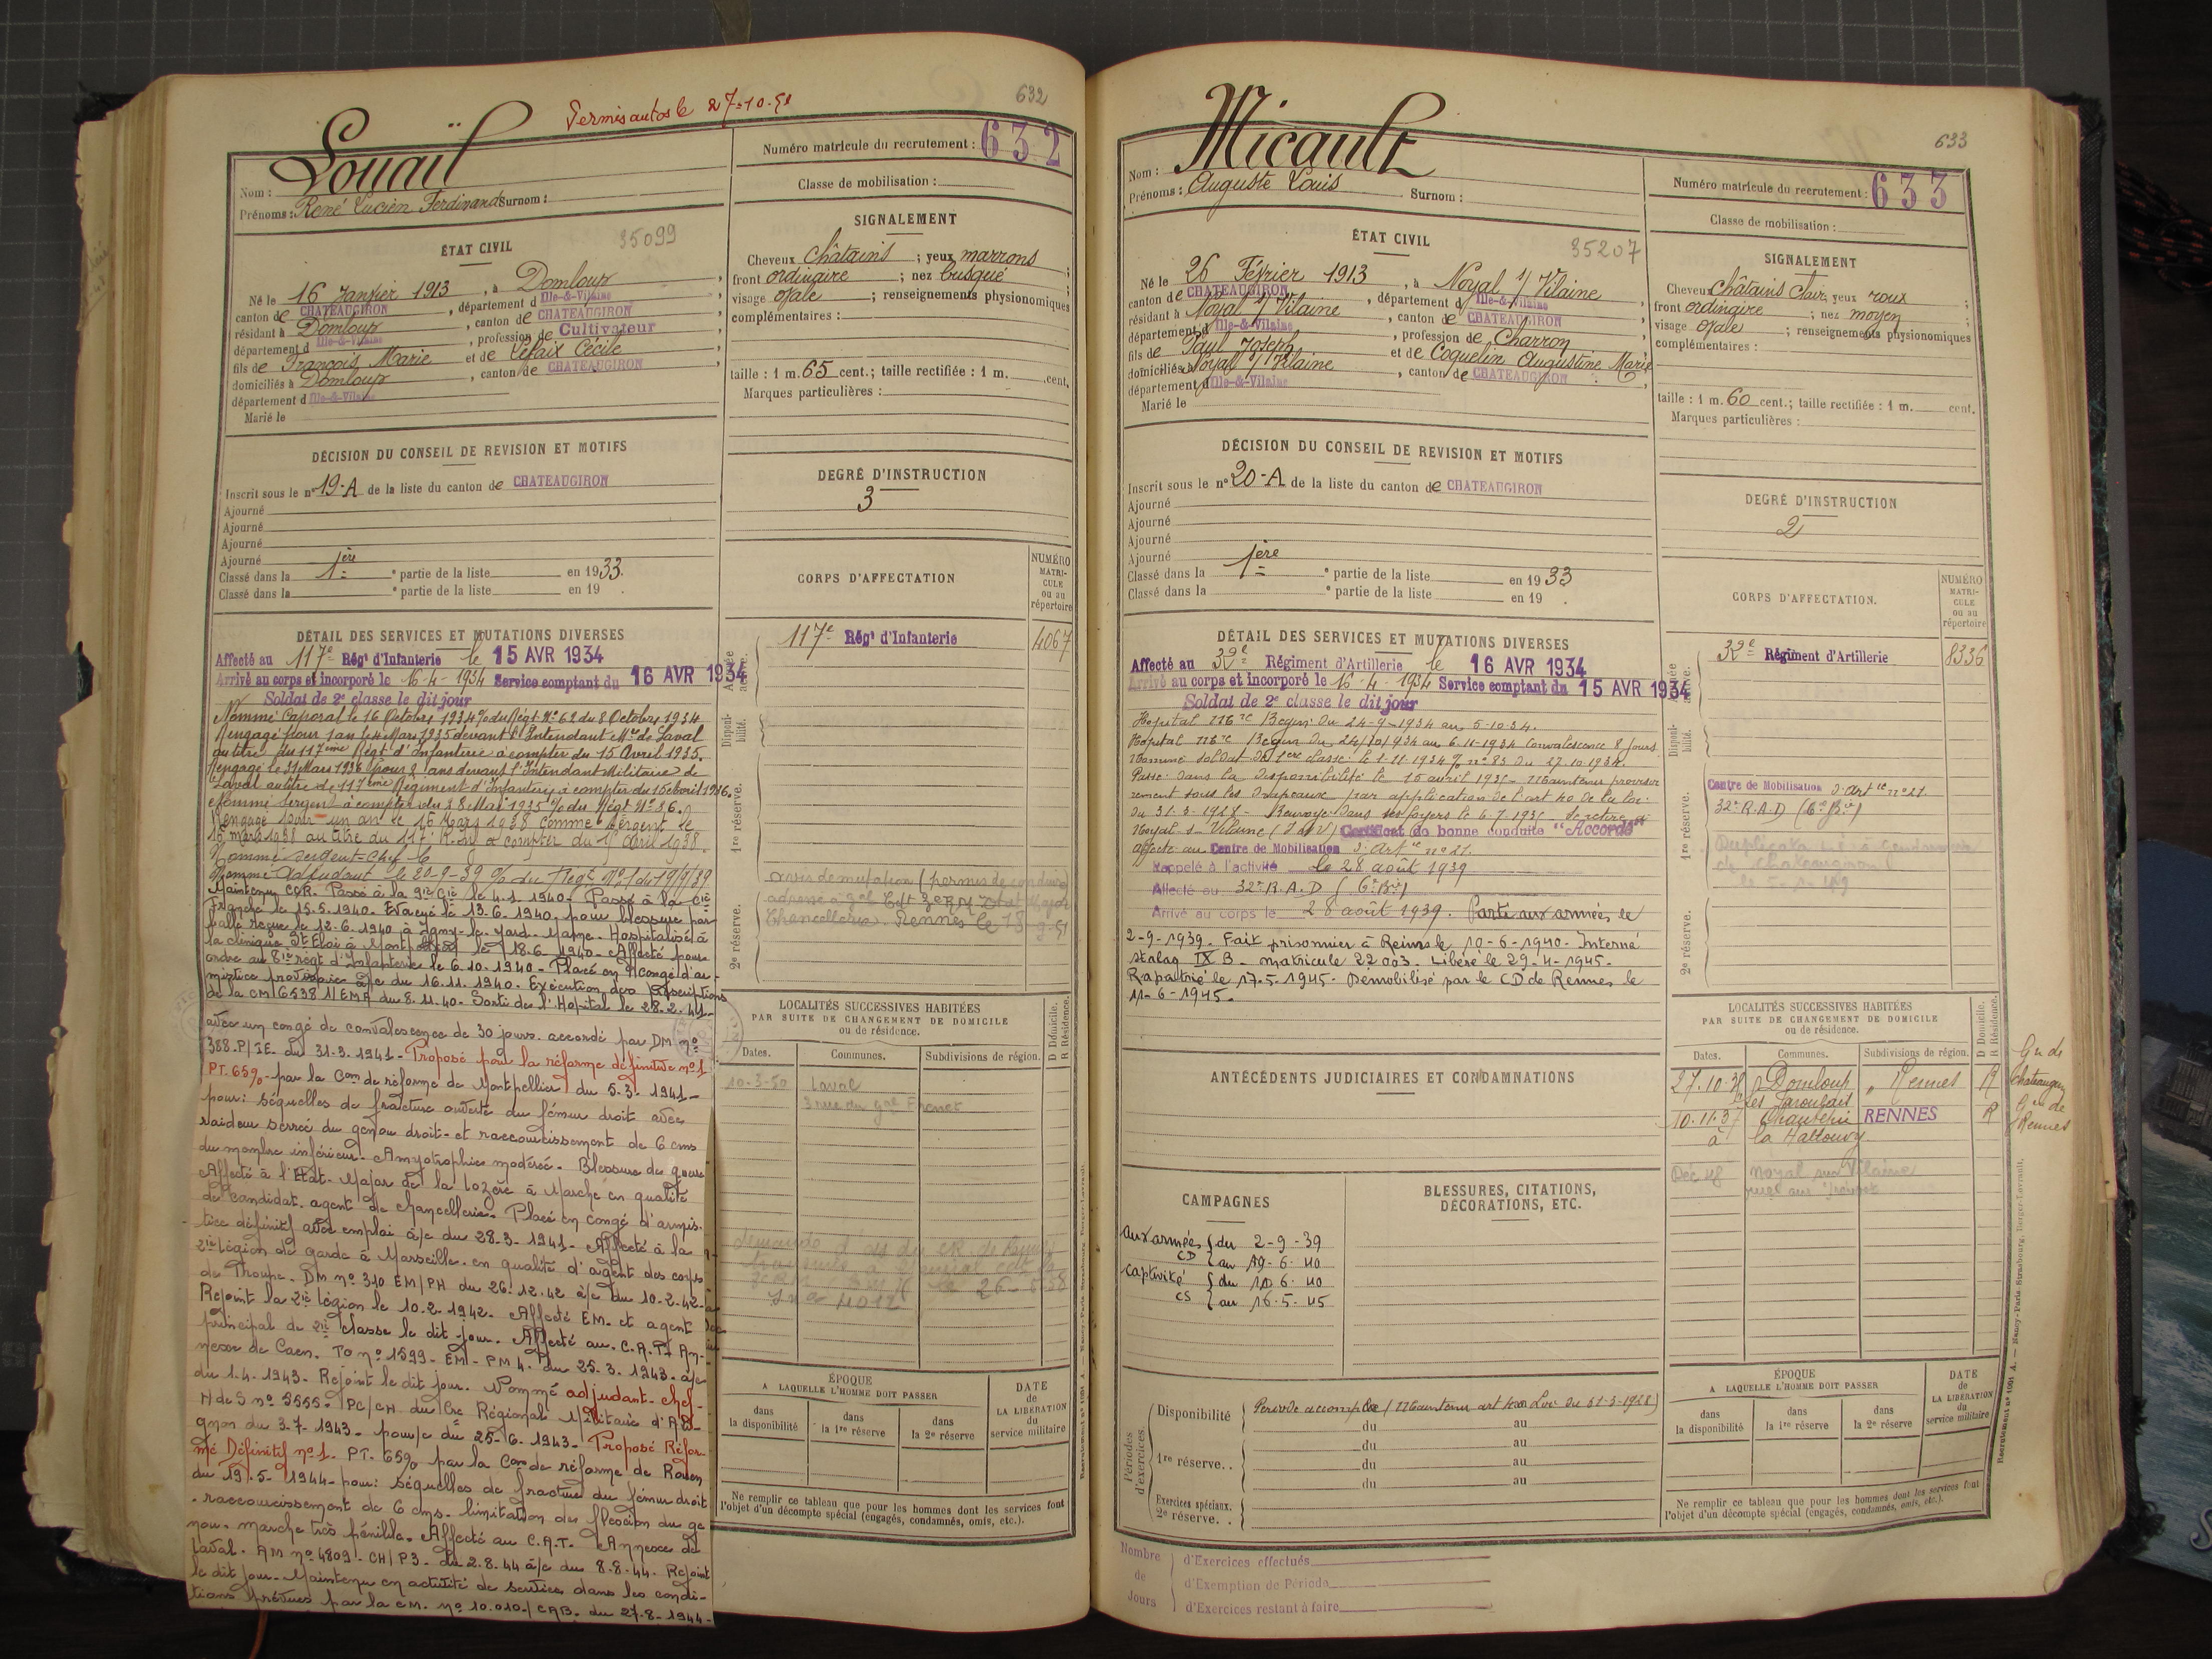 Permis autos le 27-10-51
632
Louaïl
Nom :
Prénoms : René Lucien Ferdinand Surnom :
Numéro matricule du recrutement : 632
Classe de mobilisation :
ÉTAT CIVIL
35099
Né le 16 Janvier 1913, à Domloup,
canton de CHATEAUGIRON, département d Ille-&-Vilaine,
résidant à Domloup, canton de CHATEAUGIRON,
département d Ille-&-Vilaine, profession de Cultivateur,
fils de François Marie et de Léfaix Cécile,
domiciliés à Domloup, canton de CHATEAUGIRON,
département d Ille-&-Vilaine
Marié le
SIGNALEMENT
Cheveux châtains ; yeux marrons ;
front ordinaire ; nez busqué ;
visage ovale ; renseignements physionomiques
complémentaires :
taille : 1 m. 65 cent.; taille rectifiée : 1 m. cent.
Marques particulières :
DÉCISION DU CONSEIL DE REVISION ET MOTIFS
Inscrit sous le n° 19-A de la liste du canton de CHATEAUGIRON
Ajourné
Ajourné
Ajourné
Ajourné
Classé dans la 1ère partie de la liste en 1933.
Classé dans la e partie de la liste en 19 .
DEGRÉ D'INSTRUCTION
3
CORPS D'AFFECTATION
NUMÉRO
MATRI-
CULE
ou au
répertoire
117e Régt d'Infanterie 4067
DÉTAIL DES SERVICES ET MUTATIONS DIVERSES
Affecté au 117e Régt d'Infanterie le 15 AVR 1934
Arrivé au corps et incorporé le 16-4-1934 Service comptant du 16 AVR 1934
Soldat de 2e classe le dit jour
Nommé Caporal le 16 Octobre 1934 % du Régt N° 62 du 8 Octobre 1934
Rengagé pour 1 an le 4 Mars 1935 devant l'Intendant Mre de Laval
au titre du 117ème Régt d'Infanterie à compter du 15 Avril 1935.
Rengagé le 31 Mars 1936 pour 2 ans devant l'Intendant Militaire de
Laval au titre du 117ème Régiment d'Infanterie à compter du 15 avril 1936.
Nommé Sergent à compter du 28 Mai 1935 % du Régt N° 36.
Rengagé pour un an le 16 Mars 1938 comme Sergent le
16 mars 1938 au titre du 117e R.I. à compter du 15 avril 1938.
Nommé sergent-chef le
Nommé Adjudant le 20-9-39 % du Régt N° 1 du 19/9/39
Maintenu CDR. Passé à la 9ie Cie le 4.1.1940. Passé à la Cie
Franche le 15.5.1940. Evacué le 13.6.1940 pour blessure par
balle reçue le 12.6.1940 à Igny-le-Jard. Marne. Hospitalisé à
la clinique St Eloi à Montpellier le 18.6.1940. Affecté pour
ordre au 8ie régt d'Infanterie le 6.10.1940. Placé en congé d'ar-
mistice provisoire à/c du 16.11.1940. Exécution des prescriptions
de la CM 16538 1/EMA du 8.11.40. Sorti de l'Hopital le 28.2.41
avec un congé de convalescence de 30 jours accordé par DM n°
388.P/IE. du 31-3-1941. Proposé pour la réforme définitive n° 1
PT. 65% par la Com de réforme de Montpellier du 5.3.1941
pour: séquelles de fracture ouverte du fémur droit avec
raideur serrée du genou droit et raccourcissement de 6 cms
du membre inférieur. Amyotrophie modérée. Blessure de guerre
Affecté à l'Etat-Major de la Lozère à Marche en qualité
de candidat agent de chancellerie. Placé en congé d'armis-
tice définitif avec emploi à/c du 28.3.1941. Affecté à la
2ie Légion de garde à Marseille en qualité d'agent des corps
de Troupe. DM n° 310 EM/PH du 26.12.42 à/c du 10-2-42
Rejoint la 2ie Légion le 10.2.1942. Affecté EM. et agent
principal de 2ie classe le dit jour. Affecté au C.A.T. An-
nexe de Caen. TO n° 1599. EM-PM 4. du 25.3.1943. à/c
du 1-4-1943. Rejoint le dit jour. Nommé adjudant-chef
H de S n° 3555. PC/CH du Cre Régional Militaire d'Avi-
gnon du 3.7.1943. pour/c du 25-6-1943. Proposé Réfor-
mé Définitif n° 1. PT. 65% par la Com de réforme de Rouen
du 19.5.1944 pour: séquelles de fracture du fémur droit
raccourcissement de 6 cms. limitation des flexion du ge
nou. marche très pénible. Affecté au C.A.T. Annexe de
Laval. AM n° 4809. CH/P3. du 2.8.44 à/c du 8-8-44. Rejoint
le dit jour. Maintenu en activité de service dans les condi-
tions prévues par la CM. n° 10.010./CAB. du 27-8-1944-
Disponi-
bilité.
1re réserve.
2e réserve.
avis de mutation (permis de conduire)
adressé à Gal Cdt 3e RM Etat Major
Chancellerie. Rennes le 13-9-51
LOCALITÉS SUCCESSIVES HABITÉES
PAR SUITE DE CHANGEMENT DE DOMICILE
ou de résidence.
D Domicile.
R Résidence.
Dates. Communes. Subdivisions de région.
10-3-50 Laval
3 rue du Gal Frenet
ÉPOQUE
A LAQUELLE L'HOMME DOIT PASSER
dans la disponibilité
dans la 1re réserve
dans la 2e réserve
DATE
de
LA LIBÉRATION
du
service militaire
Ne remplir ce tableau que pour les hommes dont les services font
l'objet d'un décompte spécial (engagés, condamnés, omis, etc.).
633
Micault
Nom :
Prénoms : Auguste Louis Surnom :
Numéro matricule du recrutement : 633
Classe de mobilisation :
ÉTAT CIVIL
35207
Né le 26 Février 1913, à Noyal s/ Vilaine
canton de CHATEAUGIRON, département d Ille-&-Vilaine,
résidant à Noyal s/ Vilaine, canton de CHATEAUGIRON,
département d Ille-&-Vilaine, profession de Charron,
fils de Paul Joseph et de Coquelin Augustine Marie
domiciliés à Noyal s/ Vilaine, canton de CHATEAUGIRON,
département d Ille-&-Vilaine
Marié le
SIGNALEMENT
Cheveux châtains clair, yeux roux ;
front ordinaire ; nez moyen ;
visage ovale ; renseignements physionomiques
complémentaires :
taille : 1 m. 60 cent.; taille rectifiée : 1 m. cent.
Marques particulières :
DÉCISION DU CONSEIL DE REVISION ET MOTIFS
Inscrit sous le n° 20-A de la liste du canton de CHATEAUGIRON
Ajourné
Ajourné
Ajourné
Ajourné
Classé dans la 1ère partie de la liste en 1933
Classé dans la e partie de la liste en 19 .
DEGRÉ D'INSTRUCTION
2
CORPS D'AFFECTATION.
NUMÉRO
MATRI-
CULE
ou au
répertoire
32e Régiment d'Artillerie 8336
DÉTAIL DES SERVICES ET MUTATIONS DIVERSES
Affecté au 32e Régiment d'Artillerie le 16 AVR 1934
Arrivé au corps et incorporé le 16.4.1934 Service comptant du 15 AVR 1934
Soldat de 2e classe le dit jour
Hopital Mre Begin du 24-9-1934 au 5-10-34.
Hopital Mre Begin du 24/10/934 au 6-11-1934 Convalescence 8 jours
Nommé soldat de 1ere classe le 1-11-1934 % n° 83 du 27.10.1934.
Passé dans la disponibilité le 15 avril 1935. Maintenu provisoi
rement sous les drapeaux par application de l'art 40 de la loi
du 31-3-1928. Renvoyé dans ses foyers le 6.7.1935. Se retire à
Noyal s- Vilaine (I &V) Certificat de bonne conduite "Accordé"
affecté au Centre de Mobilisation d'Art ie n° 21.
Rappelé à l'activité le 28 août 1939
Affecté au 32e R.A.D (6e Bie)
Arrivé au corps le 28 août 1939. Parti aux armées le
2-9-1939. Fait prisonnier à Reims le 10-6-1940. Interné
stalag IX B. matricule 22003. Libéré le 29-4-1945.
Rapatrié le 17-5-1945. Démobilisé par le CD de Rennes le
11-6-1945.
Disponi-
bilité.
1re réserve.
2e réserve.
Centre de Mobilisation d'Art ie n° 21
32e R.A.D (6e Bie)
ANTÉCÉDENTS JUDICIAIRES ET CONDAMNATIONS
LOCALITÉS SUCCESSIVES HABITÉES
PAR SUITE DE CHANGEMENT DE DOMICILE
ou de résidence.
D Domicile.
R Résidence.
Dates. Communes. Subdivisions de région.
Domloup Rennes R
10.11.37 Chantepie RENNES R
à la Hallouvry
Déc 48 Noyal sur Vilaine
CAMPAGNES
BLESSURES, CITATIONS,
DÉCORATIONS, ETC.
aux armées { du 2-9-39
CD { au 19-6-40
captivité { du 10 6. 40
CS { au 16-5-45
Périodes
d'exercices.
Disponibilité Période accomplie (Maintenu art 40 Loi du 31-3-1928)
du au
1re réserve. . du au
du au
du au
Exercices spéciaux.
2e réserve. .
ÉPOQUE
A LAQUELLE L'HOMME DOIT PASSER
dans la disponibilité
dans la 1re réserve
dans la 2e réserve
DATE
de
LA LIBÉRATION
du
service militaire
Ne remplir ce tableau que pour les hommes dont les services font
l'objet d'un décompte spécial (engagés, condamnés, omis, etc.).
Nombre
de
Jours
d'Exercices effectués
d'Exemption de Période
d'Exercices restant à faire